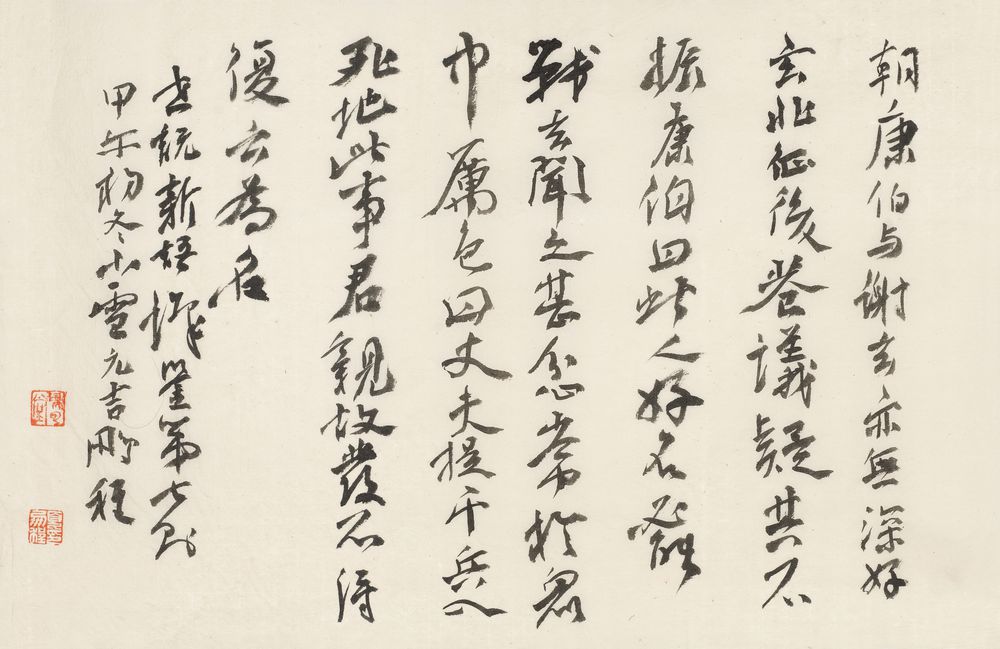 朝康伯与謝玄亦無深好
玄北征後巷議疑其不
振康伯曰此人好名必能
戰玄聞之甚忿常於眾
中厲色曰丈夫提千兵入
死地此事君親故發不得
復云為名
世說新語識鑒第七則
甲午初冬小雪元吉鵬程